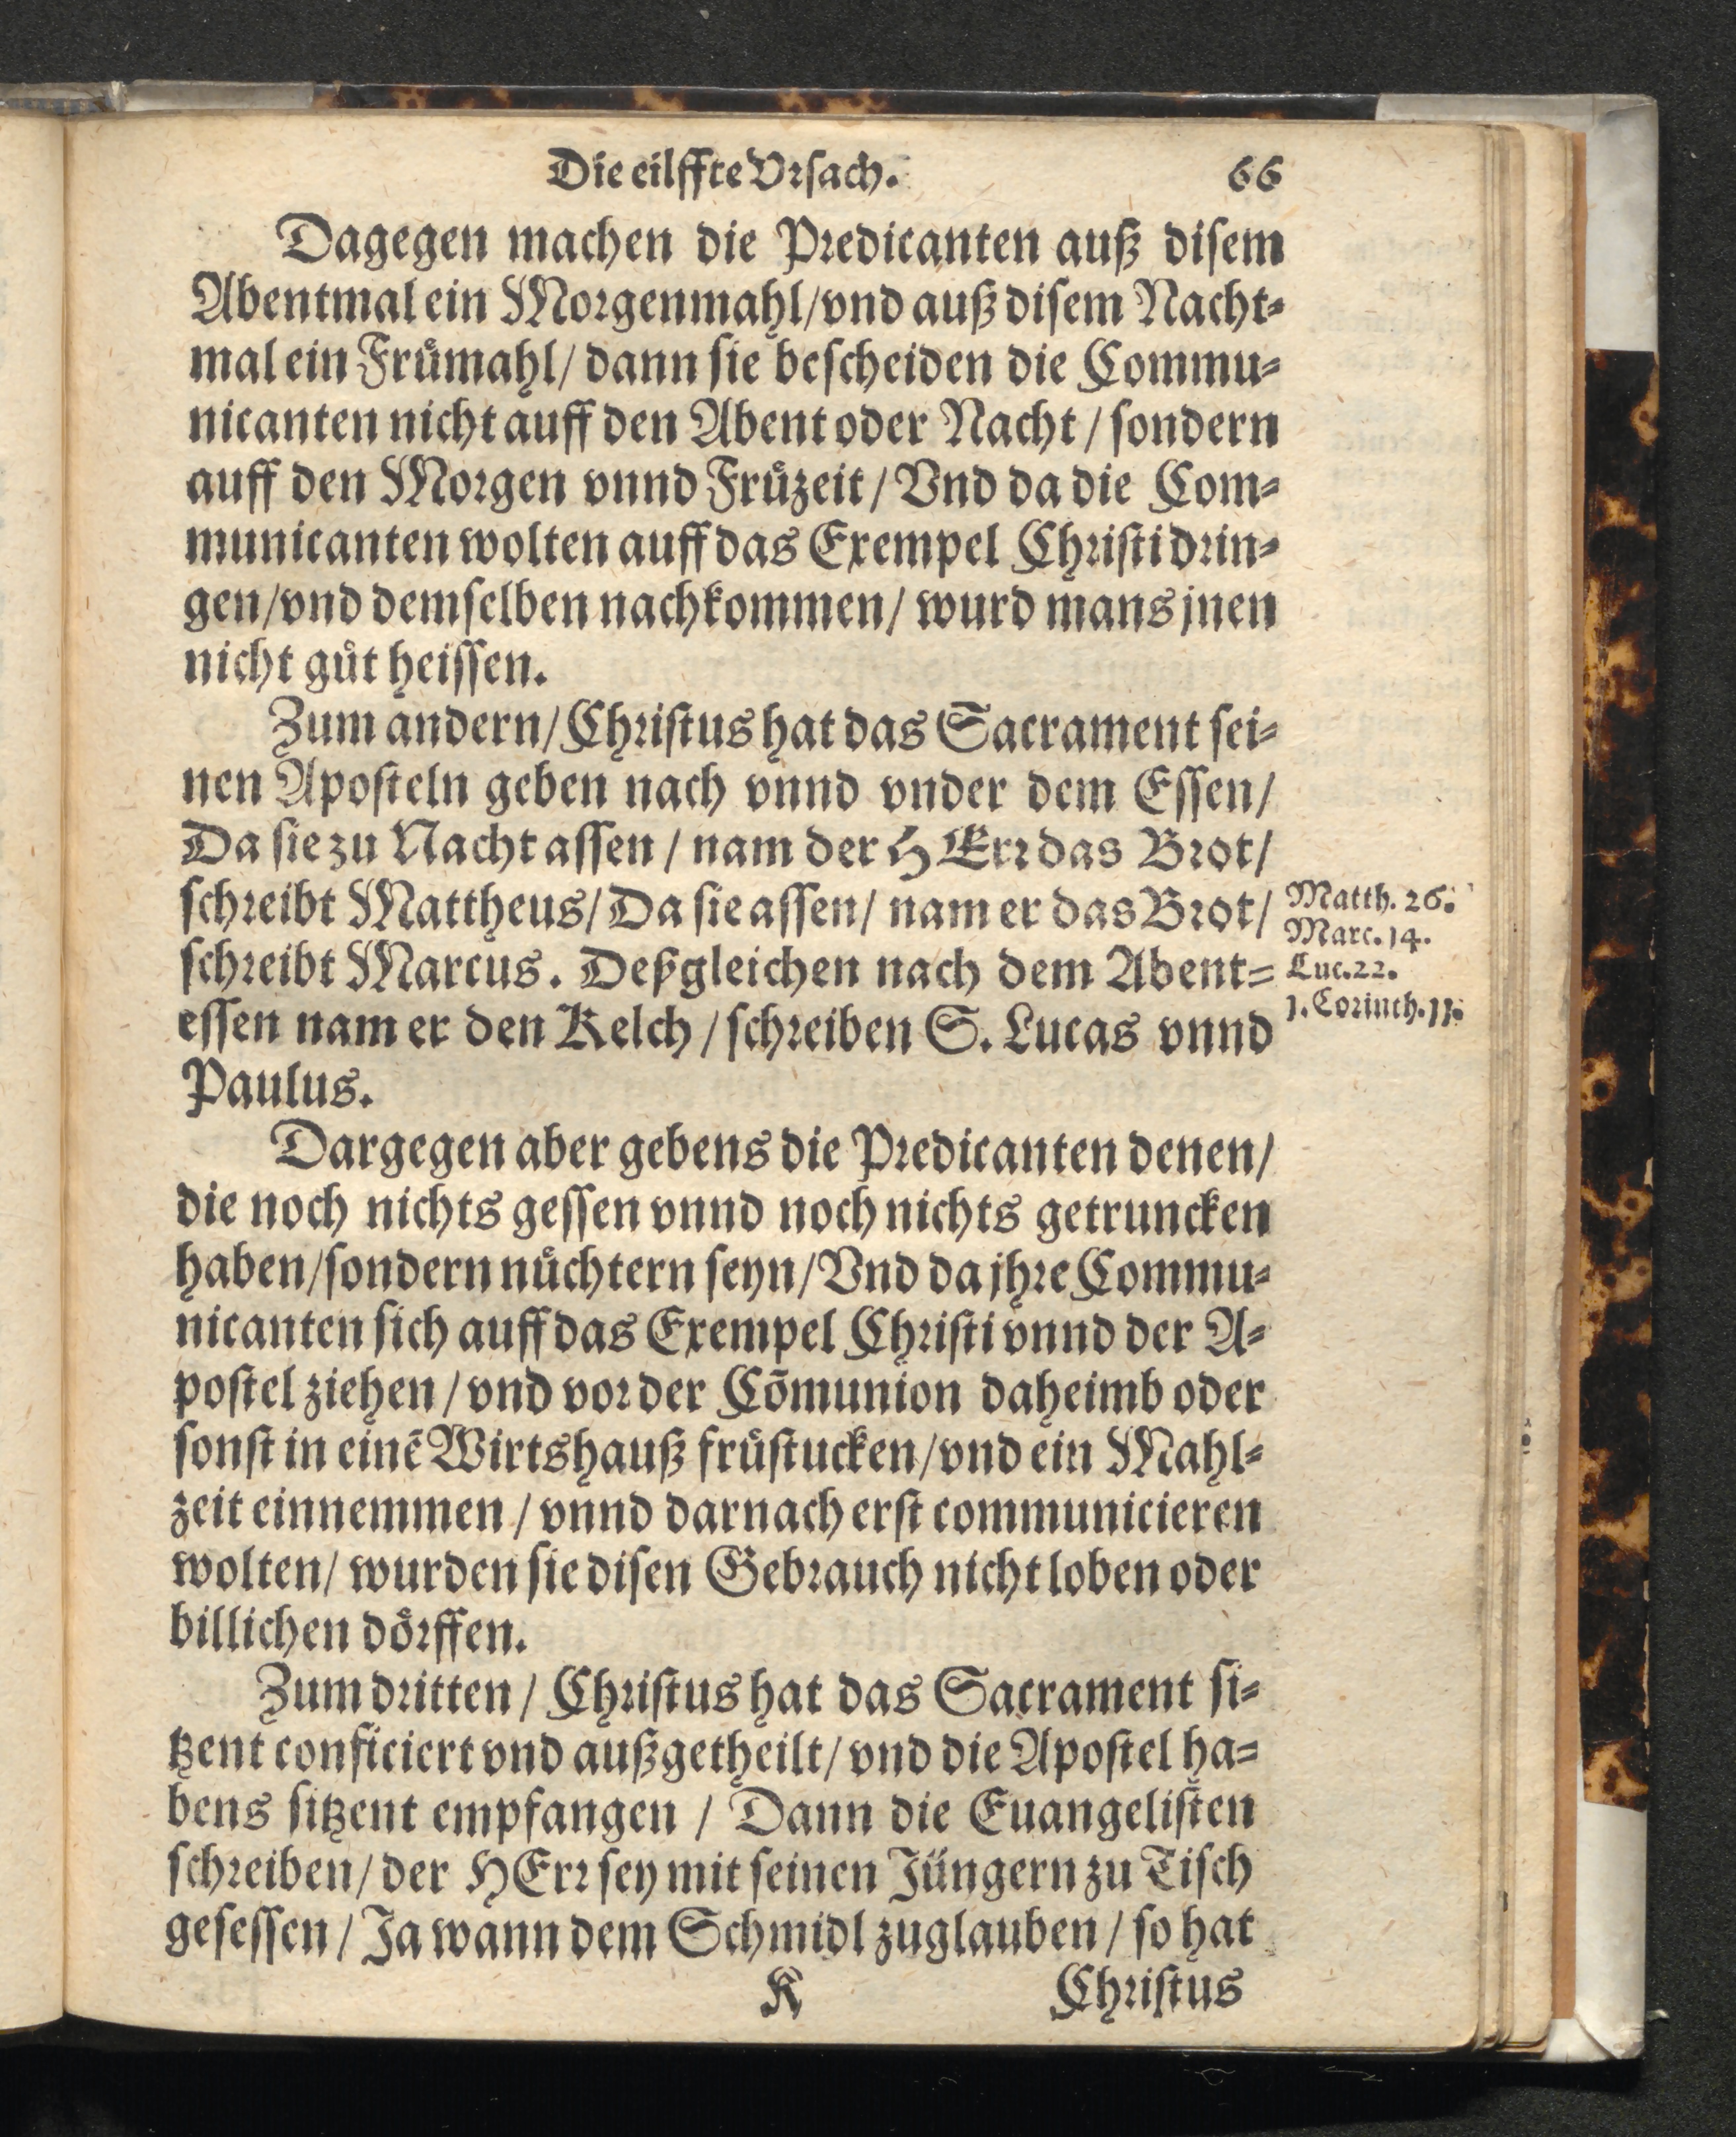 Die eilffte Vrſach. 66
Dagegen machen die Predicanten auß diſem
Abentmal ein Morgenmahl/vnd auß diſem Nacht⸗
mal ein Fruͤmahl/ dann ſie beſcheiden die Commu⸗
nicanten nicht auff den Abent oder Nacht / ſondern
auff den Morgen vnnd Fruͤzeit / Vnd da die Com⸗
municanten wolten auff das Exempel Chriſti drin⸗
gen/vnd demſelben nachkommen/ wurd mans jnen
nicht guͦt heiſſen.
Zum andern/Chriſtus hat das Sacrament ſei⸗
nen Apoſteln geben nach vnnd vnder dem Eſſen/
Da ſie zu Nacht aſſen / nam der HErr das Brot/
ſchreibt Mattheus/ Da ſie aſſen/ nam er das Brot/
Matth. 26.
ſchreibt Marcus. Deßgleichen nach dem Abent⸗
Marc. 14.
Luc. 22.
eſſen nam er den Kelch / ſchreiben S. Lucas vnnd
1. Corinth. 11.
Paulus.
Dargegen aber gebens die Predicanten denen/
die noch nichts geſſen vnnd noch nichts getruncken
haben/ſondern nuͤchtern ſeyn/Vnd da jhre Commu⸗
nicanten ſich auff das Exempel Chriſti vnnd der A⸗
poſtel ziehen / vnd vor der Cõmunion daheimb oder
ſonſt in einẽ Wirtshauß fruͤſtucken/vnd ein Mahl⸗
zeit einnemmen / vnnd darnach erſt communicieren
wolten/ wurden ſie diſen Gebrauch nicht loben oder
billichen doͤrffen.
Zum dritten / Chriſtus hat das Sacrament ſi⸗
tzent conficiert vnd außgetheilt/ vnd die Apoſtel ha⸗
bens ſitzent empfangen / Dann die Euangeliſten
ſchreiben/ der HErr ſey mit ſeinen Jüngern zu Tiſch
geſeſſen / Ja wann dem Schmidl zuglauben / ſo hat
K Chriſtus